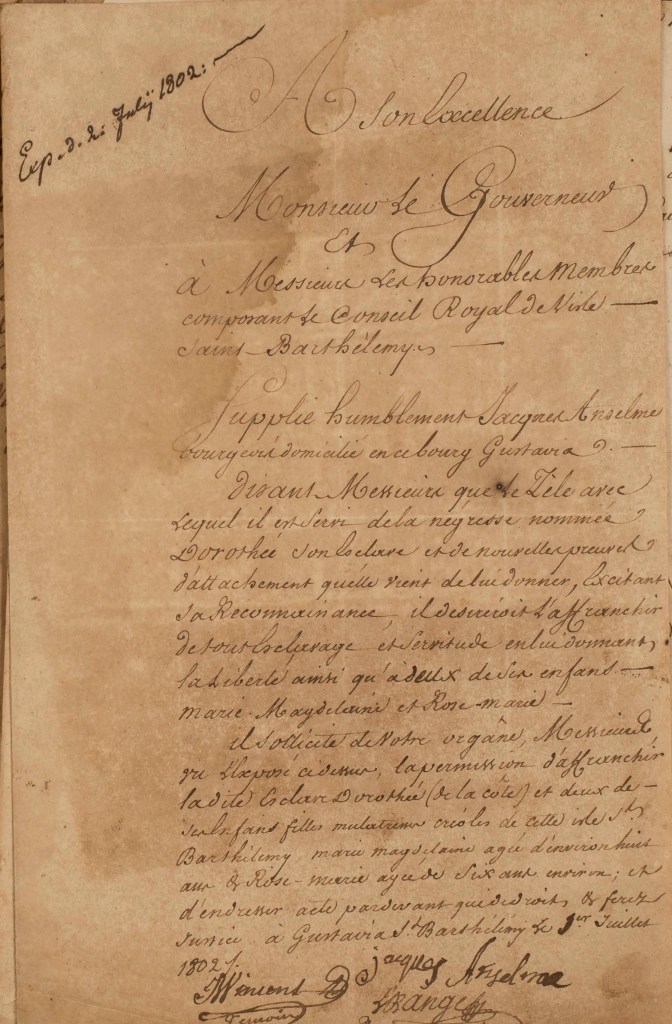 Exp. d. 2. Julÿ 1802:
A Son Excellence
Monsieur Le Gouverneur
Et
à Messieurs Les honorables membres
composant Le Conseil Royal de L'isle
Saint Barthélemy.
Supplie humblement Jacques Anselme
bourgeois domicilié en ce bourg Gustavia.
disant Messieurs que Le Zèle avec
Lequel il est Servi de la négresse nommée
Dorothée Son Esclave et de nouvelles preuves
d'attachement qu'elle vient de lui donner, Excitant
Sa Reconnaissance, il desireroit L'affranchir
de tout Esclavage et Servitude en lui donnant
la Liberté ainsi qu'à deux de Ses enfans
marie Magdelaine et Rose-marie
il Sollicite de Votre organe, Messieurs
vu L'Exposé ci dessus, la permission d'affranchir
la dite Esclave Dorothée (de la côte) et deux de
Ses Enfans filles mulatresses creoles de cette isle St.
Barthélemy, marie magdelaine agée d'environ huit
ans & Rose-marie agée de Six ans environ; et
d'en dresser acte pardevant qui de droit, & ferez
Justice. à Gustavia St. Barthélemy Le 1er Juillet
1802.
jacques Anselme
Vincent
Temoin